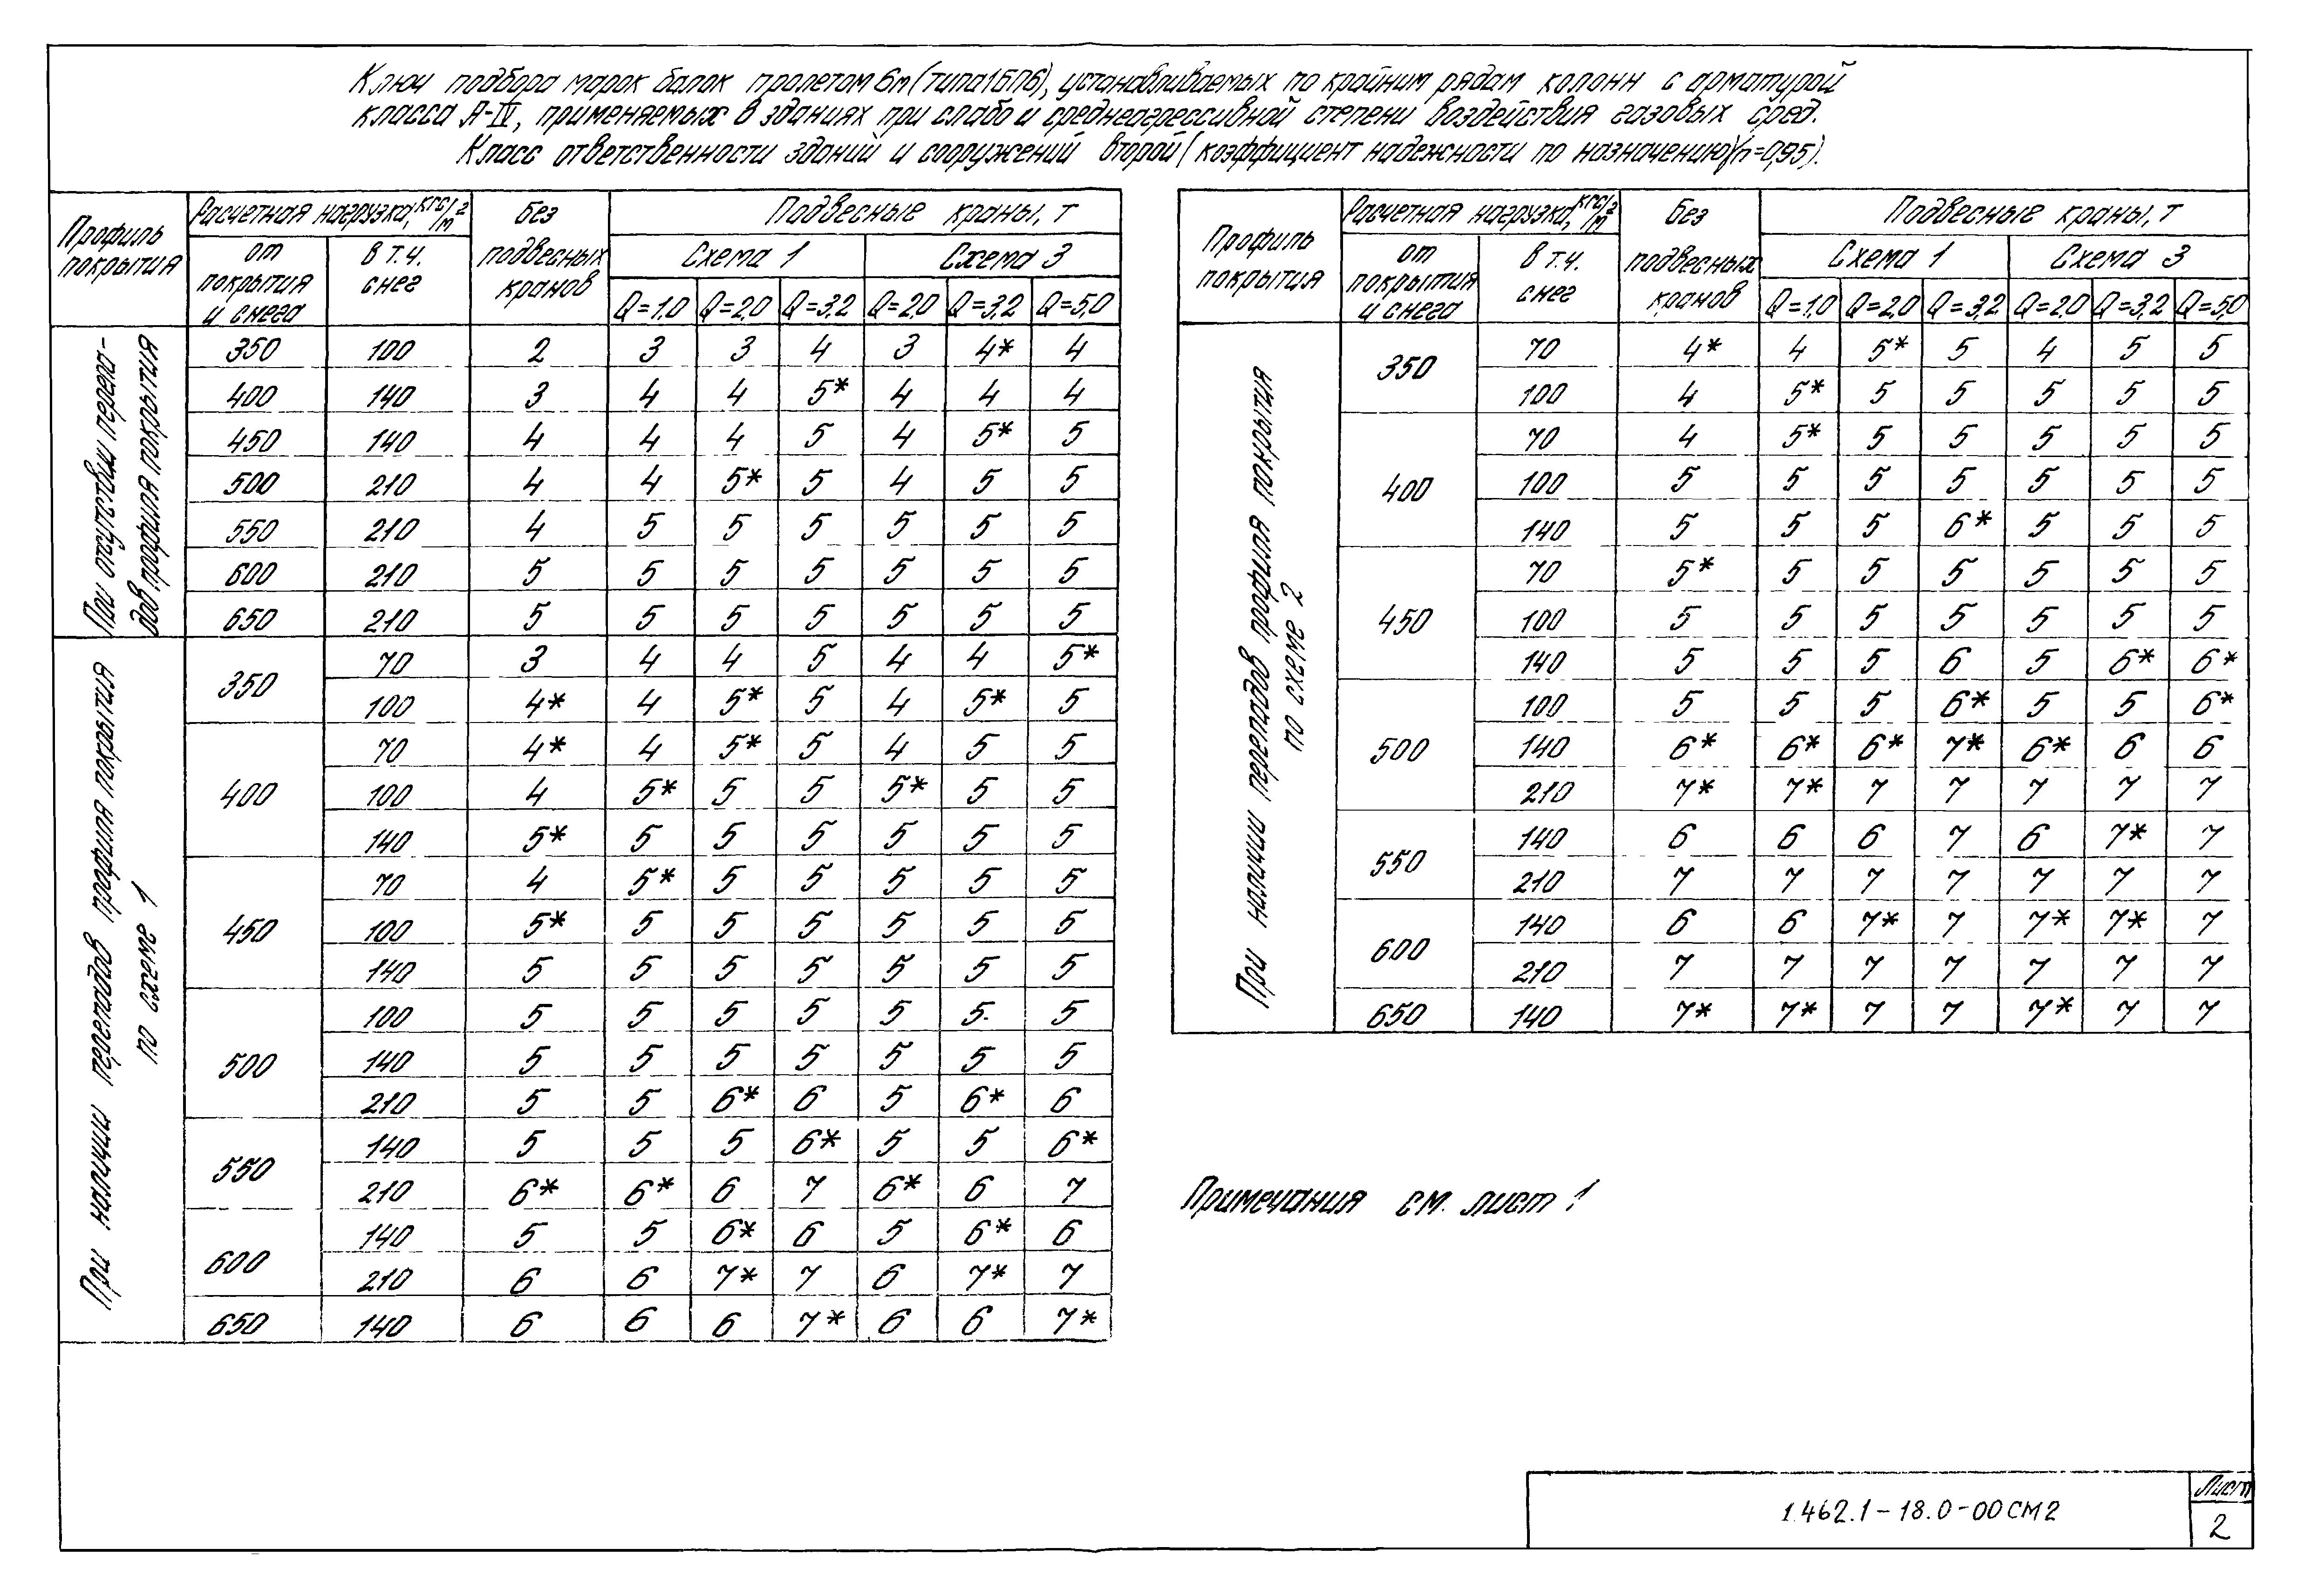 Ключ подбора марок балок пролетом 6м (типа 1БП6), устанавливаемых по крайним рядам колонн с арматурой
класса А-IV, применяемых в зданиях при слабо и среднеагрессивной степени воздействия газовых сред.
Класс ответственности зданий и сооружений второй (коэффициент надежности по назначению γn=0,95).
Профиль покрытия | Расчетная нагрузка, кгс/м² | Без подвесных кранов | Подвесные краны, т
от покрытия и снега | в т.ч. снег | Схема 1 | Схема 3
Q=1,0 Q=2,0 Q=3,2 Q=2,0 Q=3,2 Q=5,0
При отсутствии перепадов профиля покрытия
350 100 2 3 3 4 3 4* 4
400 140 3 4 4 5* 4 4 4
450 140 4 4 4 5 4 5* 5
500 210 4 4 5* 5 4 5 5
550 210 4 5 5 5 5 5 5
600 210 5 5 5 5 5 5 5
650 210 5 5 5 5 5 5 5
При наличии перепадов профиля покрытия по схеме 1
350 70 3 4 4 5 4 4 5*
100 4* 4 5* 5 4 5* 5
400 70 4* 4 5* 5 4 5 5
100 4 5* 5 5 5* 5 5
140 5* 5 5 5 5 5 5
450 70 4 5* 5 5 5 5 5
100 5* 5 5 5 5 5 5
140 5 5 5 5 5 5 5
500 100 5 5 5 5 5 5 5
140 5 5 5 5 5 5 5
210 5 5 6* 6 5 6* 6
550 140 5 5 5 6* 5 5 6*
210 6* 6* 6 7 6* 6 7
600 140 5 5 6* 6 5 6* 6
210 6 6 7* 7 6 7* 7
650 140 6 6 6 7* 6 6 7*
Профиль покрытия | Расчетная нагрузка, кгс/м² | Без подвесных кранов | Подвесные краны, т
от покрытия и снега | в т.ч. снег | Схема 1 | Схема 3
Q=1,0 Q=2,0 Q=3,2 Q=2,0 Q=3,2 Q=5,0
При наличии перепадов профиля покрытия по схеме 2
350 70 4* 4 5* 5 4 5 5
100 4 5* 5 5 5 5 5
400 70 4 5* 5 5 5 5 5
100 5 5 5 5 5 5 5
140 5 5 5 6* 5 5 5
450 70 5* 5 5 5 5 5 5
100 5 5 5 5 5 5 5
140 5 5 5 6 5 6* 6*
500 100 5 5 5 6* 5 5 6*
140 6* 6* 6* 7* 6* 6 6
210 7* 7* 7 7 7 7 7
550 140 6 6 6 7 6 7* 7
210 7 7 7 7 7 7 7
600 140 6 6 7* 7 7* 7* 7
210 7 7 7 7 7 7 7
650 140 7* 7* 7 7 7* 7 7
Примечания см. лист 1
1.462.1-18.0-00СМ2
Лист
2